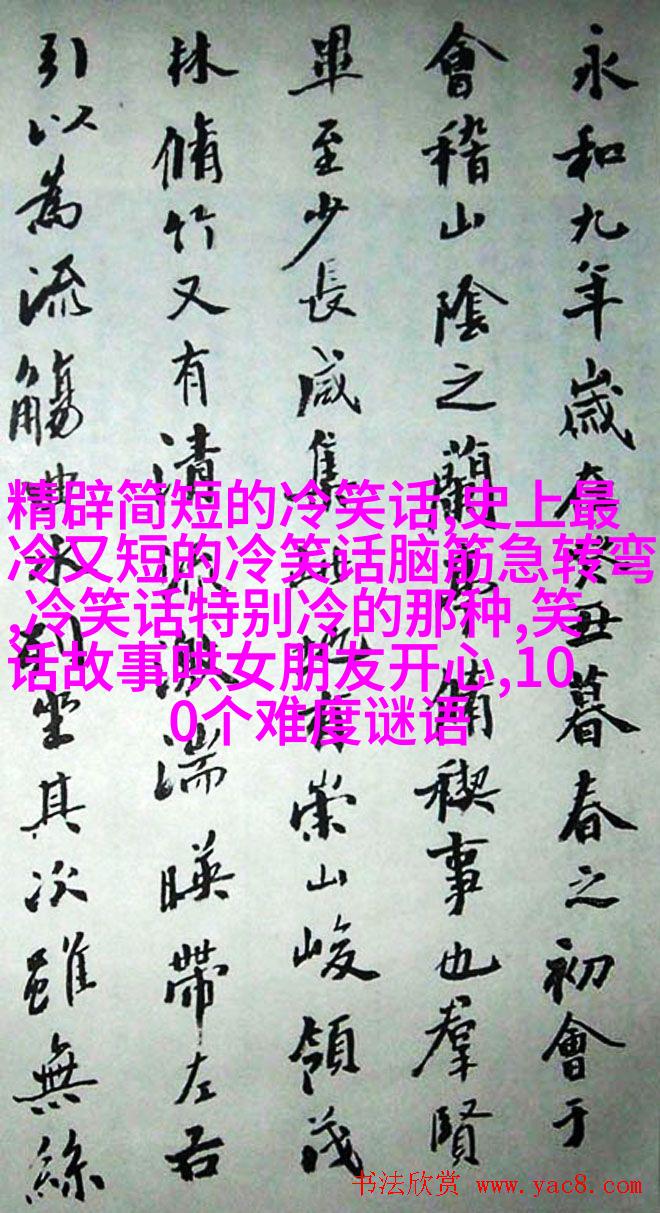 永和九年歲在癸丑暮春之初會于
會稽山陰之蘭亭脩禊事也羣賢
畢至少長咸集此地有崇山峻領茂
林脩竹又有清流激湍暎帶左右
引以為流觴曲水列坐其次雖無絲
精辟简短的冷笑话,史上最
冷又短的冷笑话脑筋急转弯
,冷笑话特别冷的那种,笑
话故事哄女朋友开心,10
0个难度谜语
书法欣赏 www.yac8.com